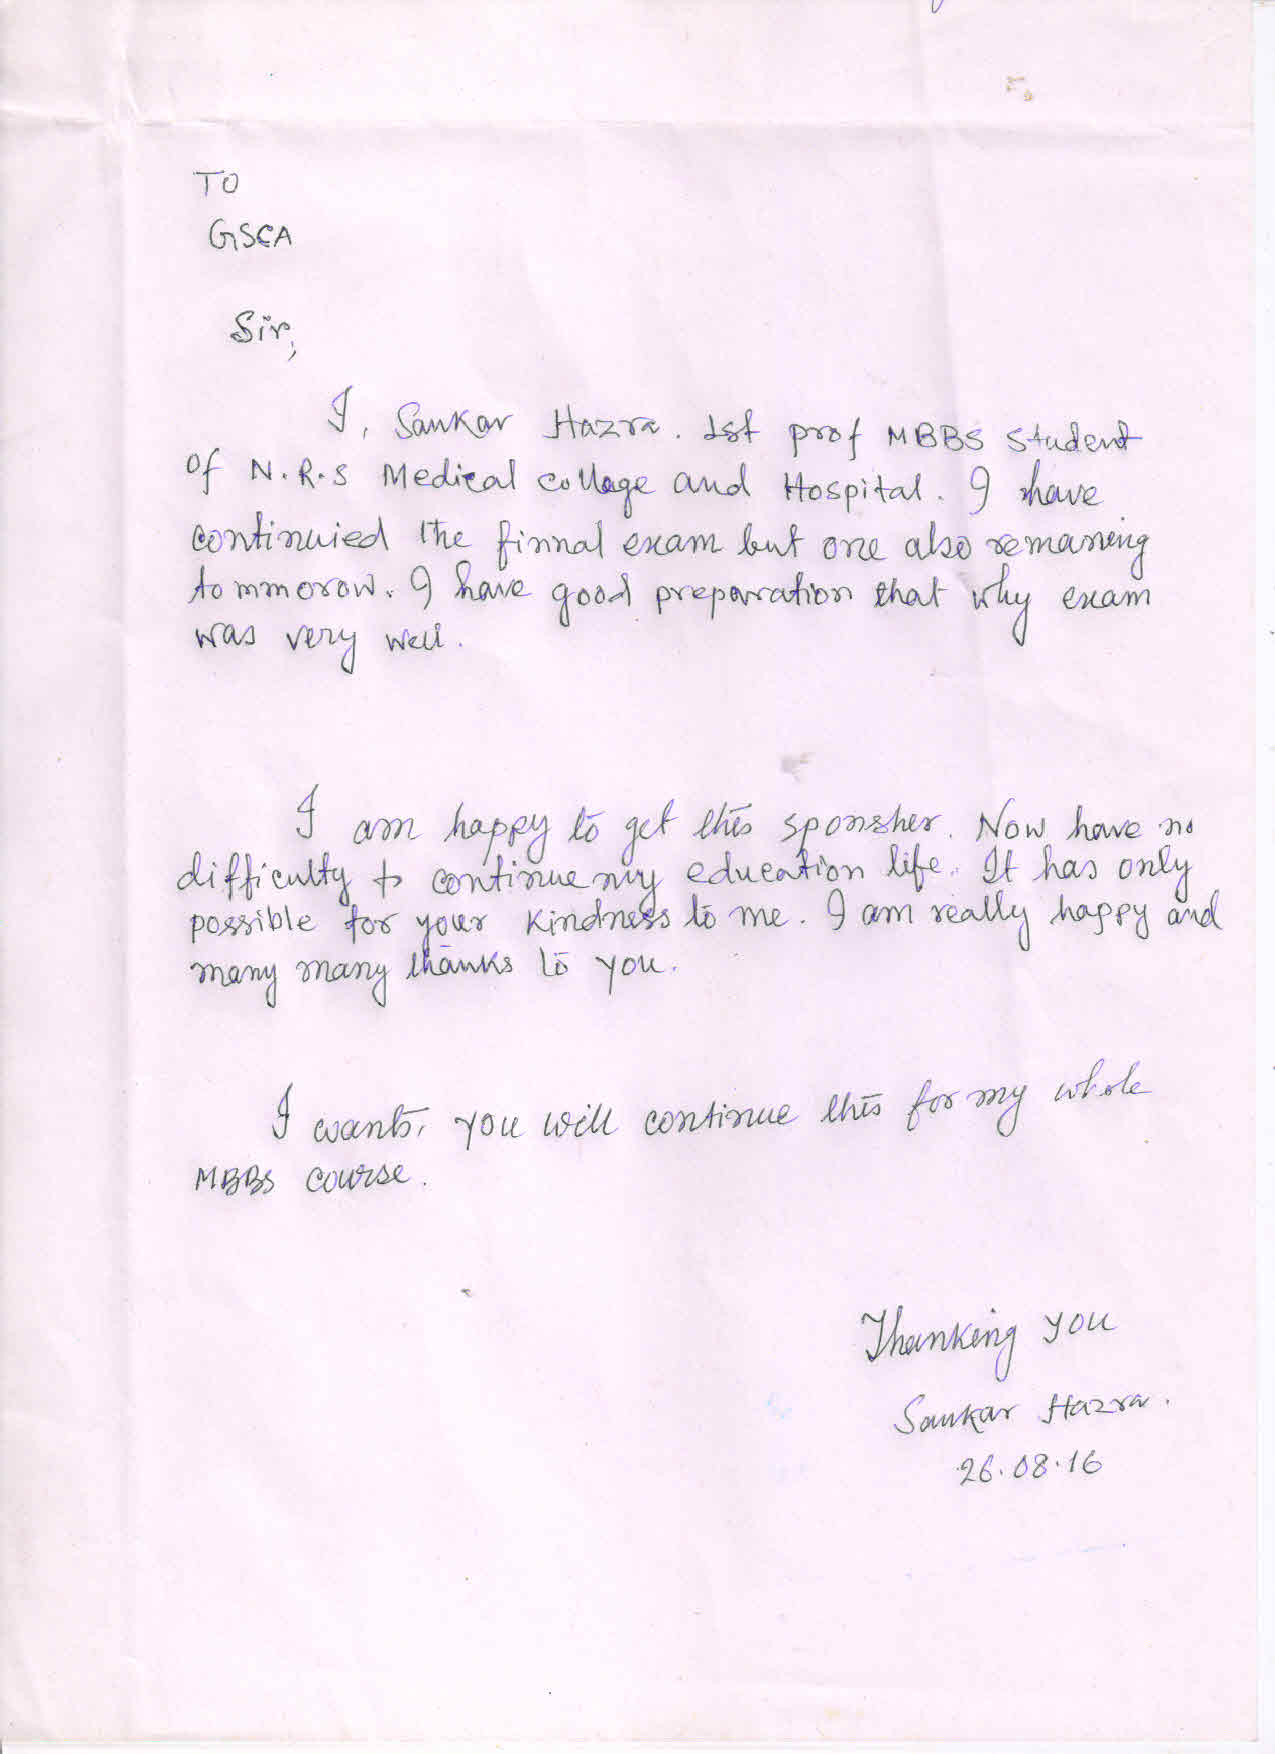 TO
GSCA
Sir,
I, Sankar Hazra. 1st prof MBBS student
of N.R.S Medical college and Hospital. I have
continuied the finnal exam but one also remaning
tommorow. I have good preparation that why exam
was very well.
I am happy to get this sponsher. Now have no
difficulty to continue my education life. It has only
possible for your kindness to me. I am really happy and
many many thanks to you.
I wants, you will continue this for my whole
MBBS course.
Thanking you
Sankar Hazra.
26.08.16